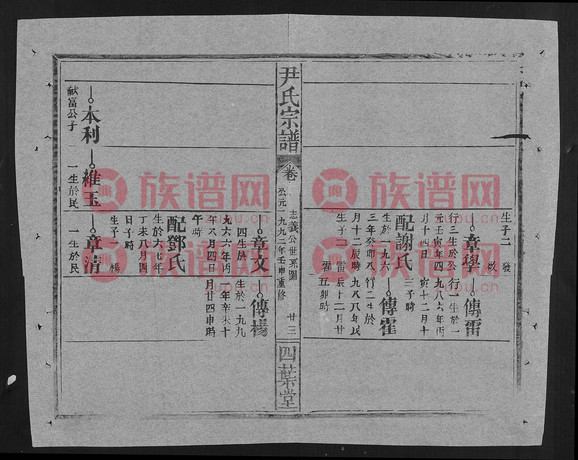 生子二 發
政
章學
行三生於公
元壬寅年四
月十四日
傳雷
行一生於一
九八六年丙
寅十二月十
三子時
配謝氏
生於一九六
三年癸卯八
月十二辰時
生子二 雷
霍
傳霍
行二生於
一九八八年
戊辰十二月廿
五卯時
尹氏宗譜
卷二
志義公世系圖
公元一九九二年壬申重修
廿三
四葉堂
章文
四生於一
九六六年丙
午八月四日
午時
傳楊
生於一九九
一年辛未十
月廿四申時
配鄧氏
生於六七年
丁未八月四
日子時
生子一 楊
本利
獻富公子
維玉
一生於民
章清
一生於民
族谱网